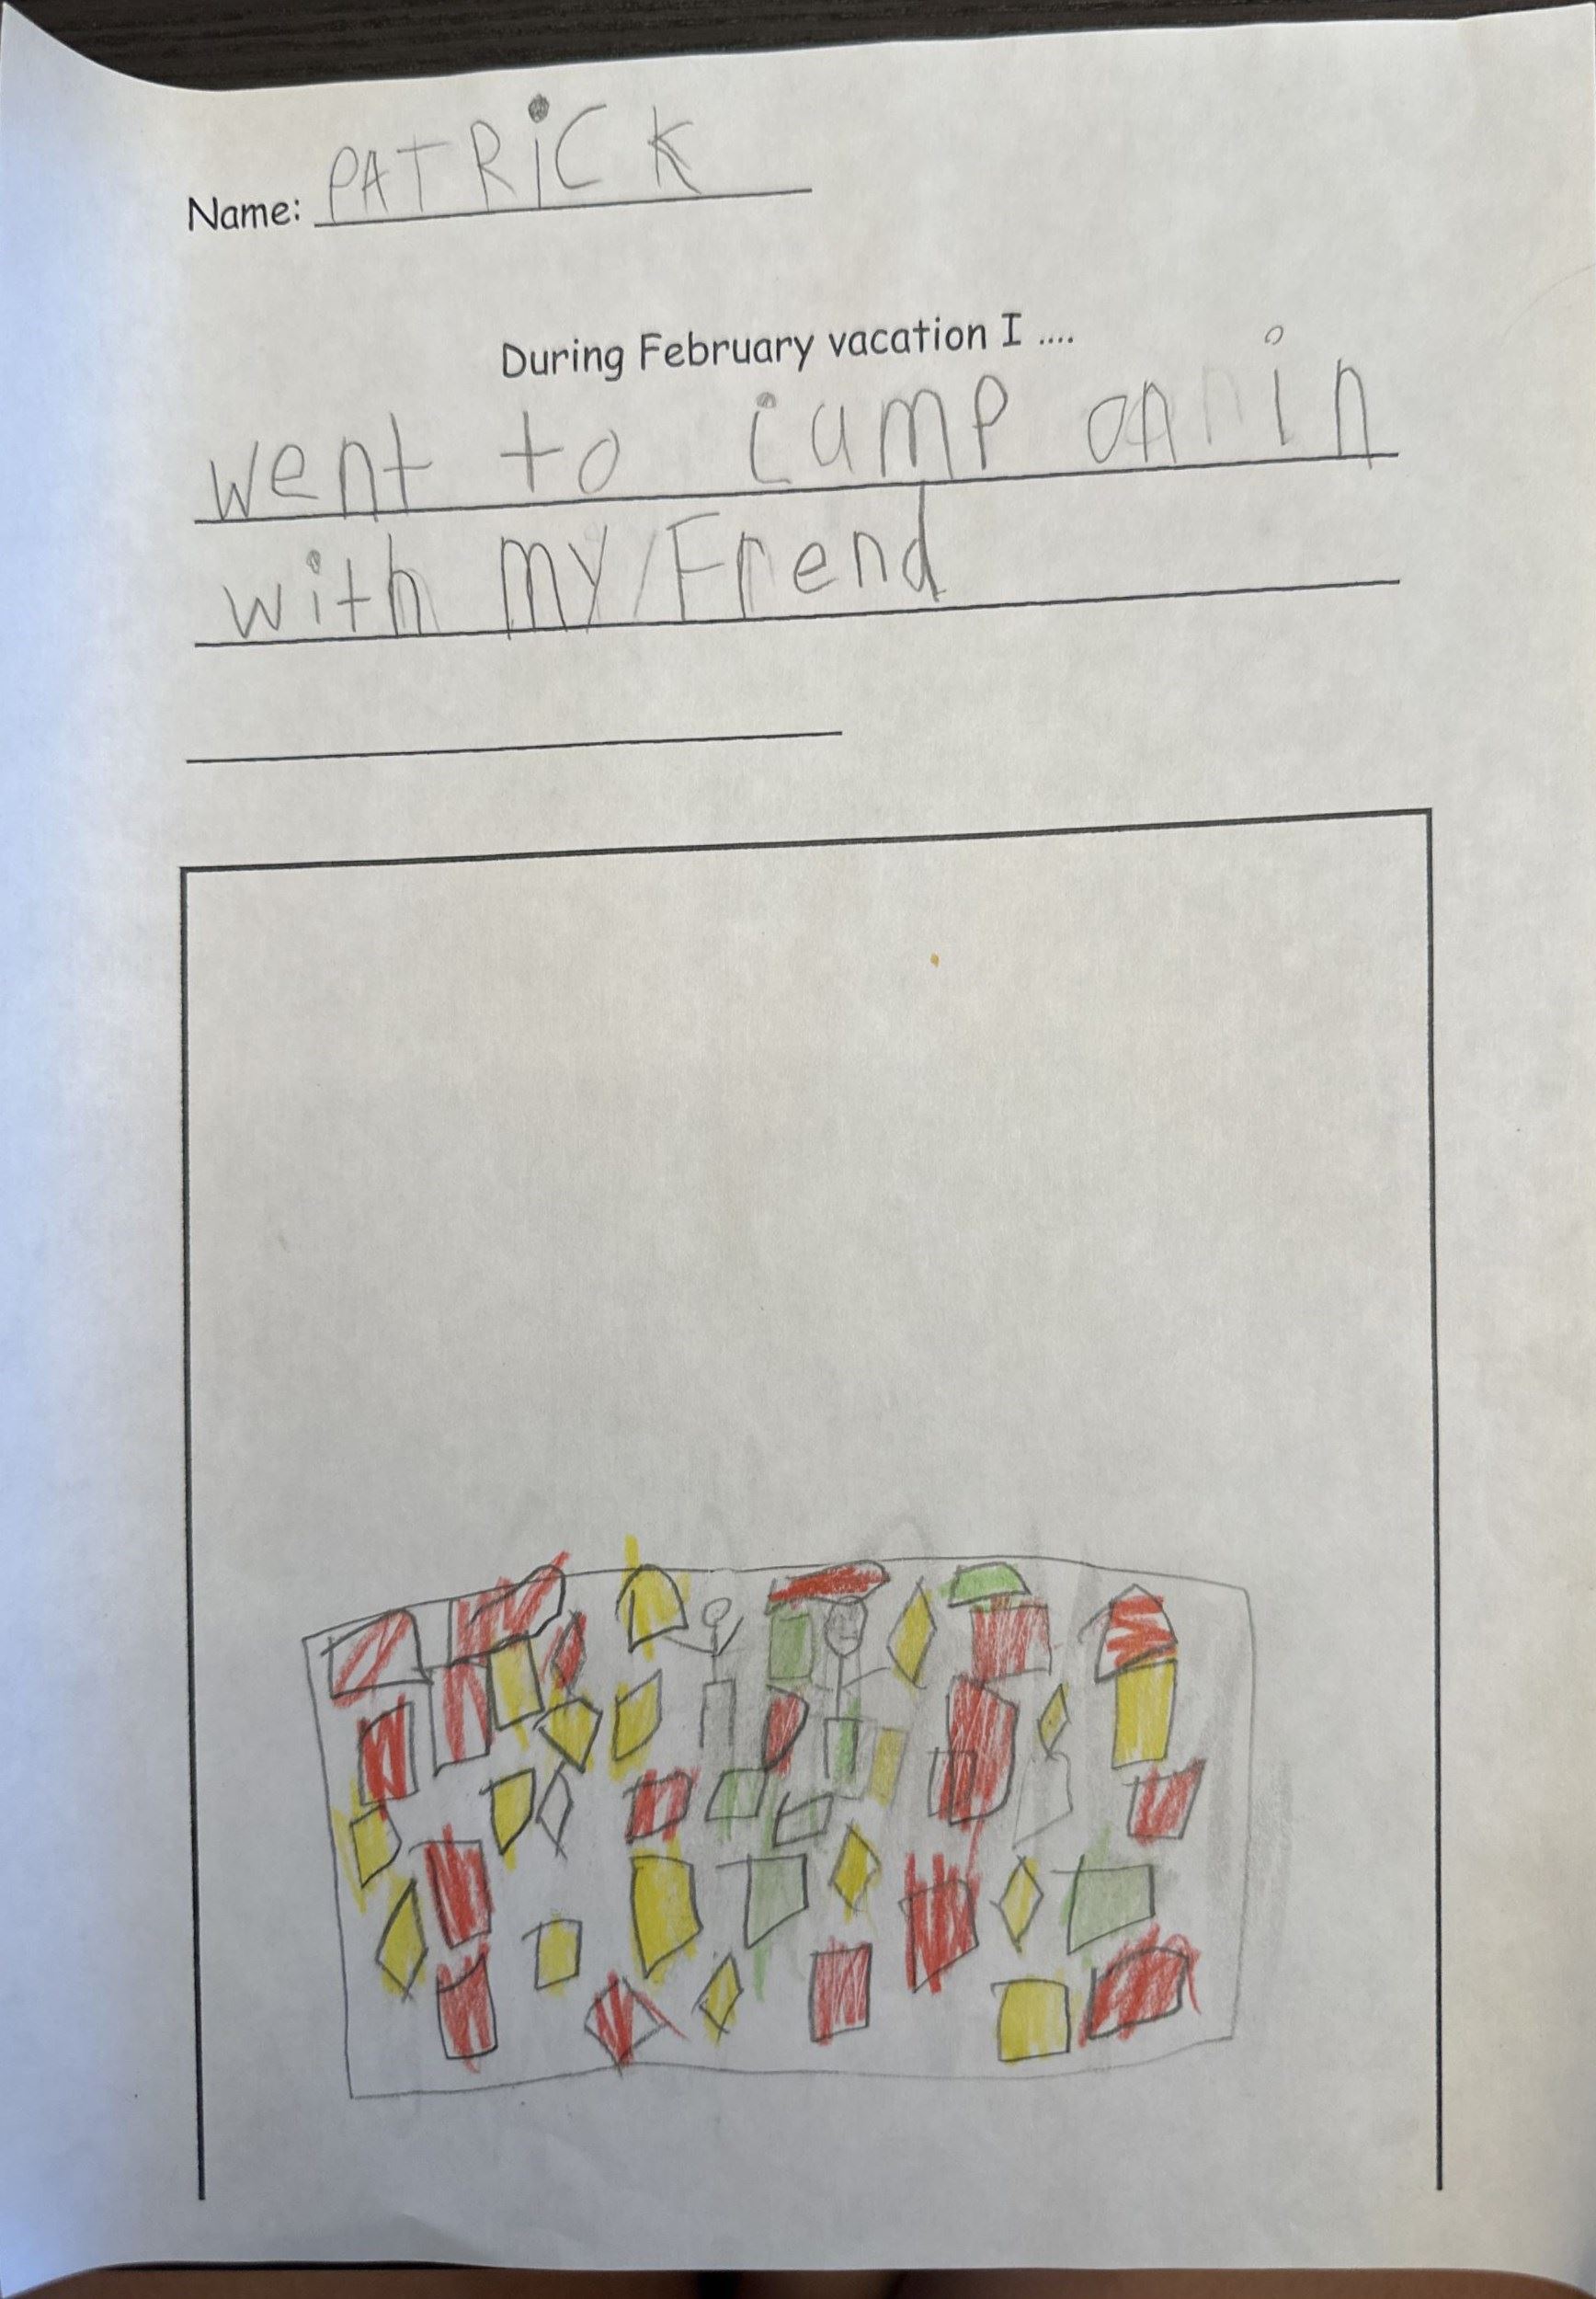 Name: PATRiCK
During February vacation I ....
went to iump on in
with my Frend